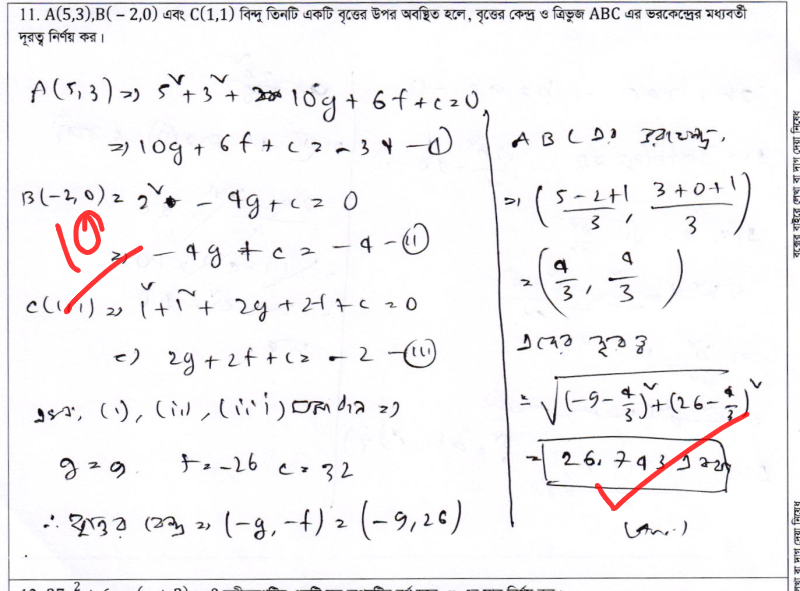 11. A(5,3),B(−2,0) এবং C(1,1) বিন্দু তিনটি একটি বৃত্তের উপর অবস্থিত হলে, বৃত্তের কেন্দ্র ও ত্রিভুজ ABC এর ভরকেন্দ্রের মধ্যবর্তী
দূরত্ব নির্ণয় কর।
A(5,3) ⇒ 5² + 3² + 10g + 6f + c = 0
⇒ 10g + 6f + c = -34 -(i)
B(-2,0) = 2² - 4g + c = 0
⇒ -4g + c = -4 -(ii)
10
C(1,1) ⇒ 1² + 1² + 2g + 2f + c = 0
⇒ 2g + 2f + c = -2 -(iii)
এখন, (i), (ii), (iii) সমাধান ⇒
g = 9 f = -26 c = 32
∴ বৃত্তের কেন্দ্র ⇒ (-g, -f) = (-9, 26)
ABC এর ভরকেন্দ্র,
⇒ (5-2+1/3, 3+0+1/3)
= (4/3, 4/3)
এদের দূরত্ব
= √(-9 - 4/3)² + (26 - 4/3)²
= 26.743 একক
(Ans.)
বক্সের বাইরে লেখা বা দাগ দেয়া নিষেধ
লেখা বা দাগ দেয়া নিষেধ